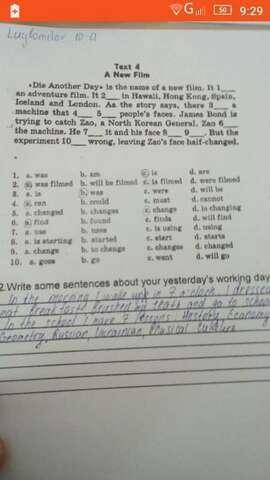 9:29
Text 4
A New Film
«Die Another Day» is the name of a new film. It 1___
an adventure film. It 2___ in Hawaii, Hong Kong, Spain,
Iceland and London. As the story says, there 3___ a
machine that 4___ 5___ people's faces. James Bond is
trying to catch Zao, a North Korean General. Zao 6___
the machine. He 7___ it and his face 8___ 9___. But the
experiment 10___ wrong, leaving Zao's face half-changed.
1. a. was b. am c. is d. are
2. a. was filmed b. will be filmed c. is filmed d. were filmed
3. a. is b. was c. were d. will be
4. a. can b. could c. must d. cannot
5. a. changed b. changes c. change d. is changing
6. a. find b. found c. finds d. will find
7. a. use b. uses c. is using d. using
8. a. is starting b. started c. start d. starts
9. a. change b. to change c. changes d. changed
10. a. goes b. go c. went d. will go
2.Write some sentences about your yesterday's working day
In the morning I woke up in 7 o'clock. I dressed
eat breakfast brushed my teath and go to school
In the school I have 7 lessons: History, Economy
Geometry, Russian, Ukrainian, Physical Culture